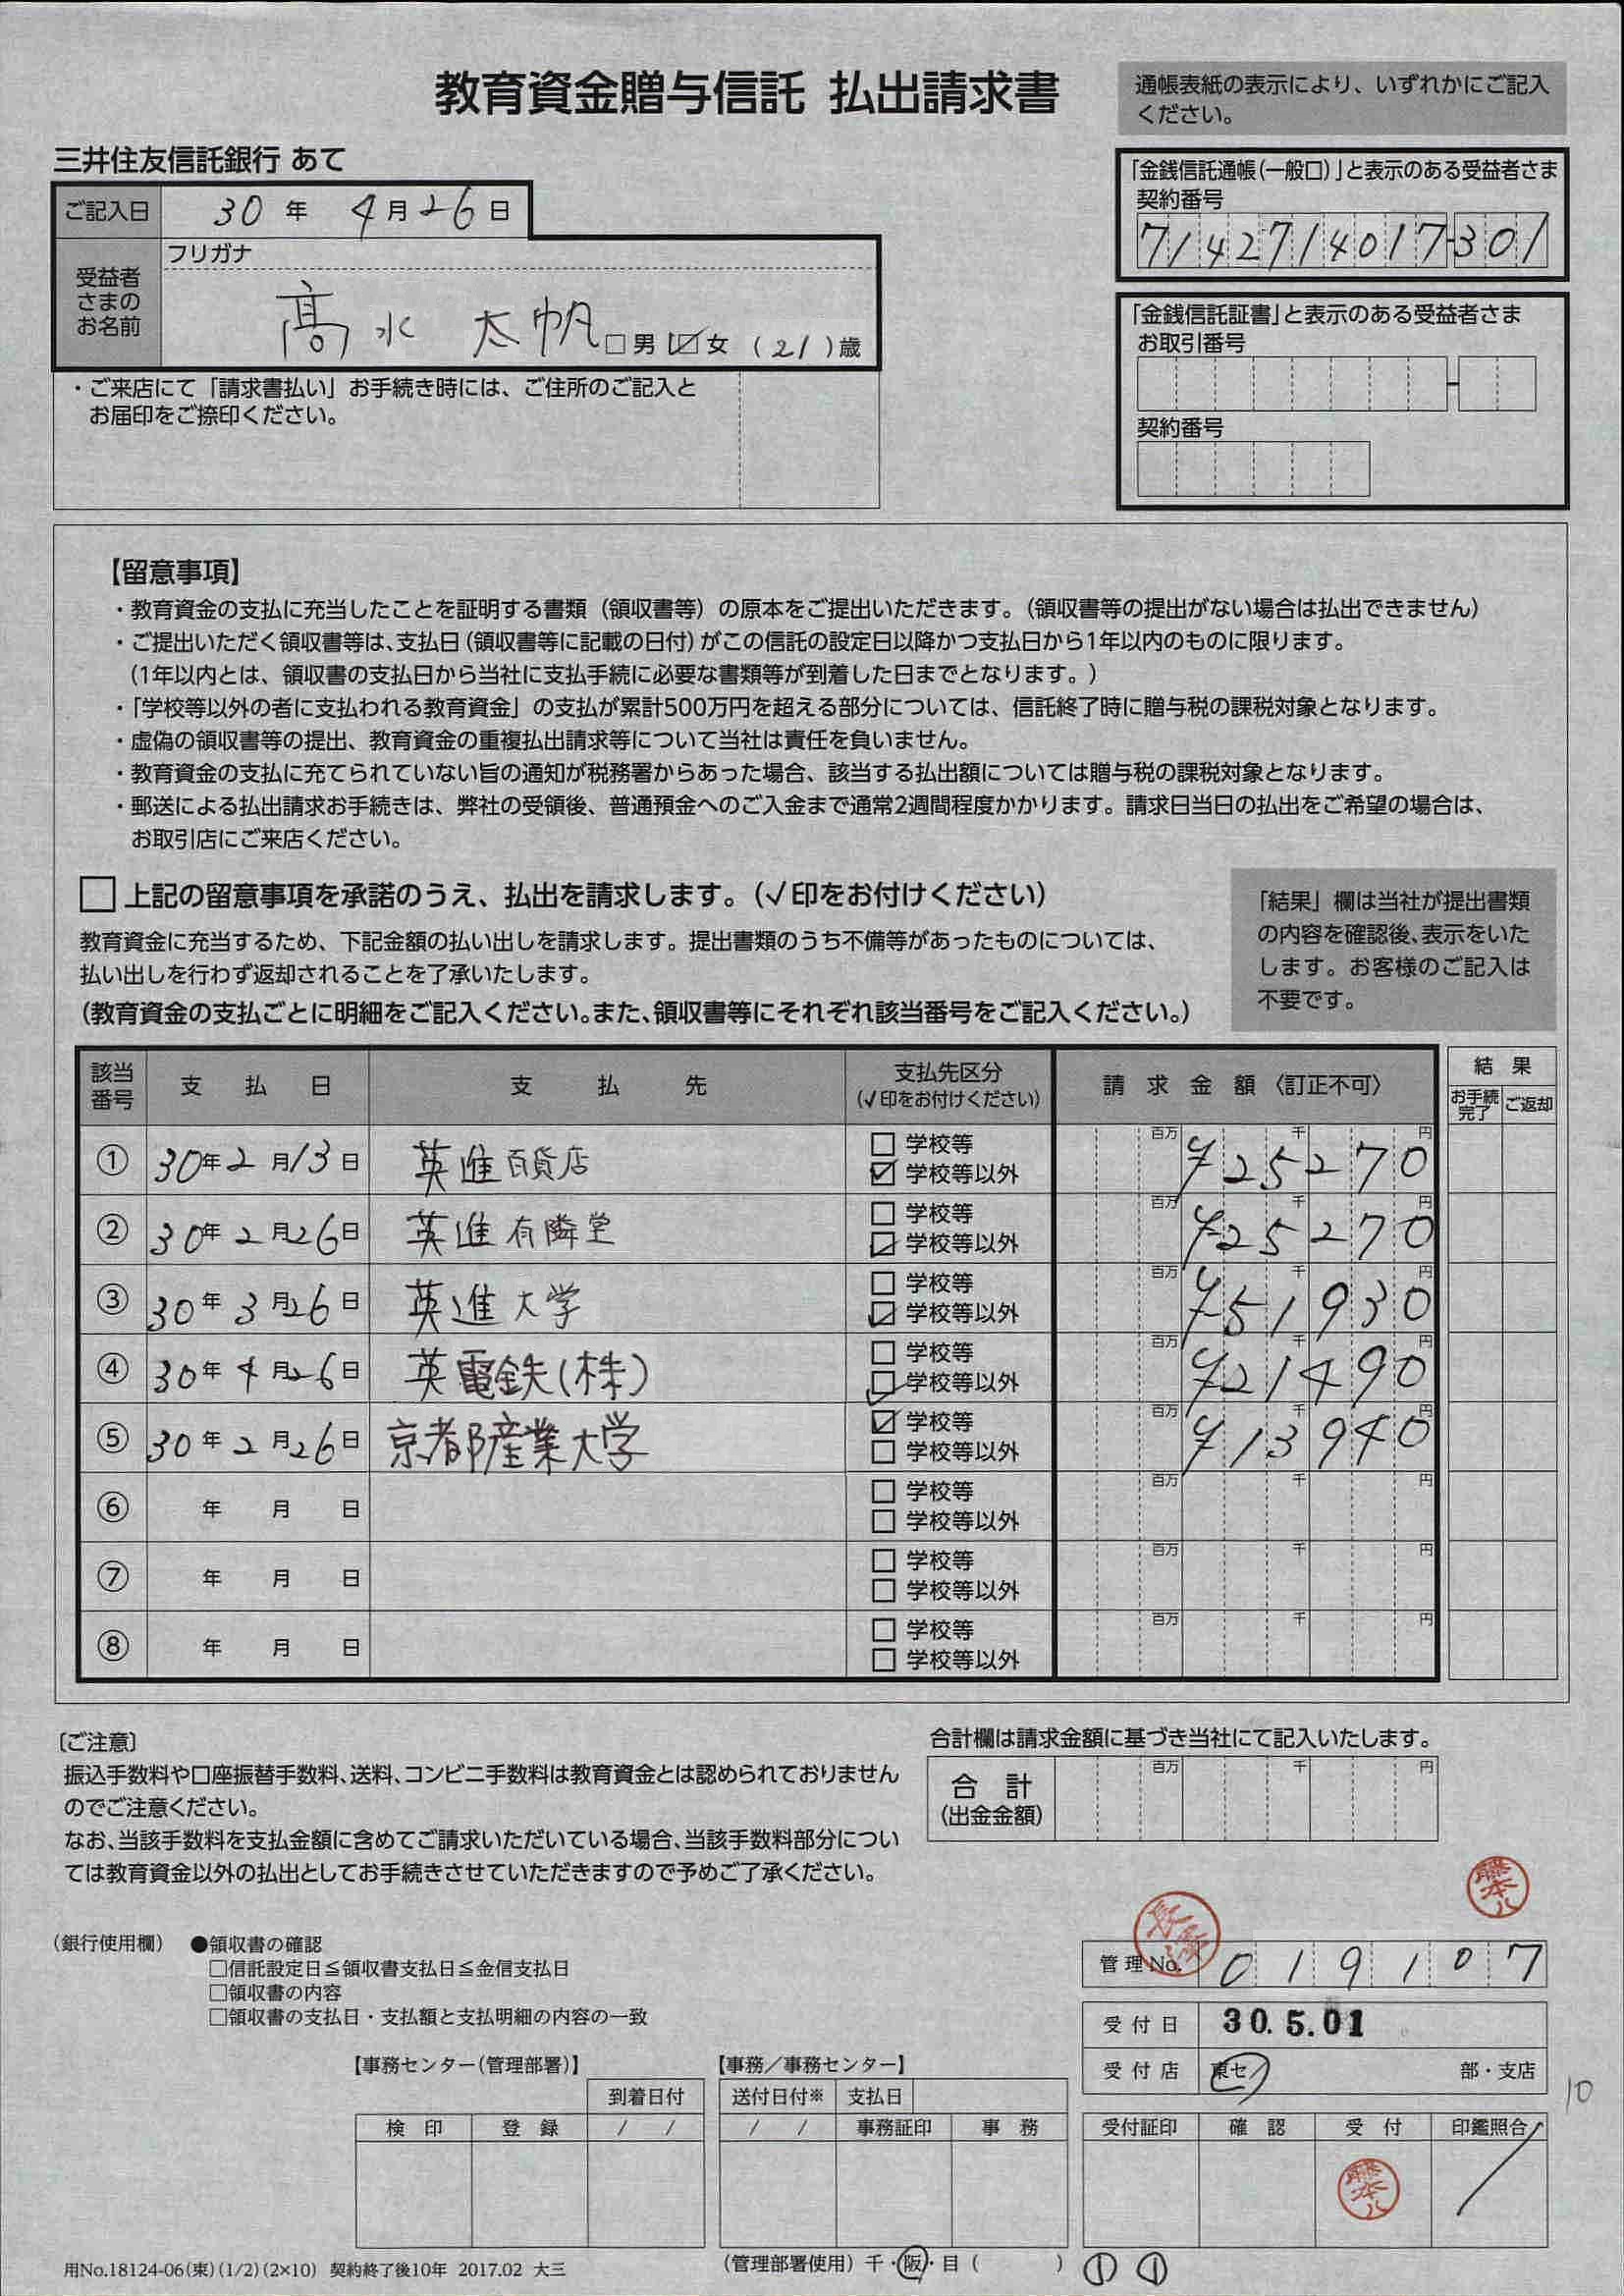 教育資金贈与信託 払出請求書
通帳表紙の表示により、いずれかにご記入
ください。
三井住友信託銀行 あて
ご記入日 30年 4月26日
フリガナ
受益者
さまの
お名前
髙水 太帆 □男 ☑女 (21)歳
・ご来店にて「請求書払い」お手続き時には、ご住所のご記入と
お届印をご捺印ください。
「金銭信託通帳(一般口)」と表示のある受益者さま
契約番号
7142714017-301
「金銭信託証書」と表示のある受益者さま
お取引番号
-
契約番号
【留意事項】
・教育資金の支払に充当したことを証明する書類(領収書等)の原本をご提出いただきます。(領収書等の提出がない場合は払出できません)
・ご提出いただく領収書等は、支払日(領収書等に記載の日付)がこの信託の設定日以降かつ支払日から1年以内のものに限ります。
(1年以内とは、領収書の支払日から当社に支払手続に必要な書類等が到着した日までとなります。)
・「学校等以外の者に支払われる教育資金」の支払が累計500万円を超える部分については、信託終了時に贈与税の課税対象となります。
・虚偽の領収書等の提出、教育資金の重複払出請求等について当社は責任を負いません。
・教育資金の支払に充てられていない旨の通知が税務署からあった場合、該当する払出額については贈与税の課税対象となります。
・郵送による払出請求お手続きは、弊社の受領後、普通預金へのご入金まで通常2週間程度かかります。請求日当日の払出をご希望の場合は、
お取引店にご来店ください。
□ 上記の留意事項を承諾のうえ、払出を請求します。(√印をお付けください)
教育資金に充当するため、下記金額の払い出しを請求します。提出書類のうち不備等があったものについては、
払い出しを行わず返却されることを了承いたします。
(教育資金の支払ごとに明細をご記入ください。また、領収書等にそれぞれ該当番号をご記入ください。)
「結果」欄は当社が提出書類
の内容を確認後、表示をいた
します。お客様のご記入は
不要です。
該当番号 支払日 支払先 支払先区分 (√印をお付けください) 請求金額〈訂正不可〉 結果 お手続完了 ご返却
① 30年2月13日 英進百貨店 □学校等 ☑学校等以外 百万 千 円 ¥25270
② 30年2月26日 英進有隣堂 □学校等 ☑学校等以外 百万 千 円 ¥25270
③ 30年3月26日 英進大学 □学校等 ☑学校等以外 百万 千 円 ¥51930
④ 30年4月26日 英電鉄(株) □学校等 ☑学校等以外 百万 千 円 ¥21490
⑤ 30年2月26日 京都産業大学 ☑学校等 □学校等以外 百万 千 円 ¥13940
⑥ 年 月 日 □学校等 □学校等以外 百万 千 円
⑦ 年 月 日 □学校等 □学校等以外 百万 千 円
⑧ 年 月 日 □学校等 □学校等以外 百万 千 円
〔ご注意〕
振込手数料や口座振替手数料、送料、コンビニ手数料は教育資金とは認められておりません
のでご注意ください。
なお、当該手数料を支払金額に含めてご請求いただいている場合、当該手数料部分につい
ては教育資金以外の払出としてお手続きさせていただきますので予めご了承ください。
合計欄は請求金額に基づき当社にて記入いたします。
合計 (出金金額) 百万 千 円
藤本
(銀行使用欄) ●領収書の確認
□信託設定日≦領収書支払日≦金信支払日
□領収書の内容
□領収書の支払日・支払額と支払明細の内容の一致
管理No. 019107
受付日 30.5.01
受付店 東セ 部・支店
10
【事務センター(管理部署)】
到着日付
検印 登録 / /
【事務/事務センター】
送付日付※ 支払日
/ / 事務証印 事務
受付証印 確認 受付 印鑑照合
藤本
用No.18124-06(東)(1/2)(2×10) 契約終了後10年 2017.02 大三
(管理部署使用) 千・阪・目( ) ① ①